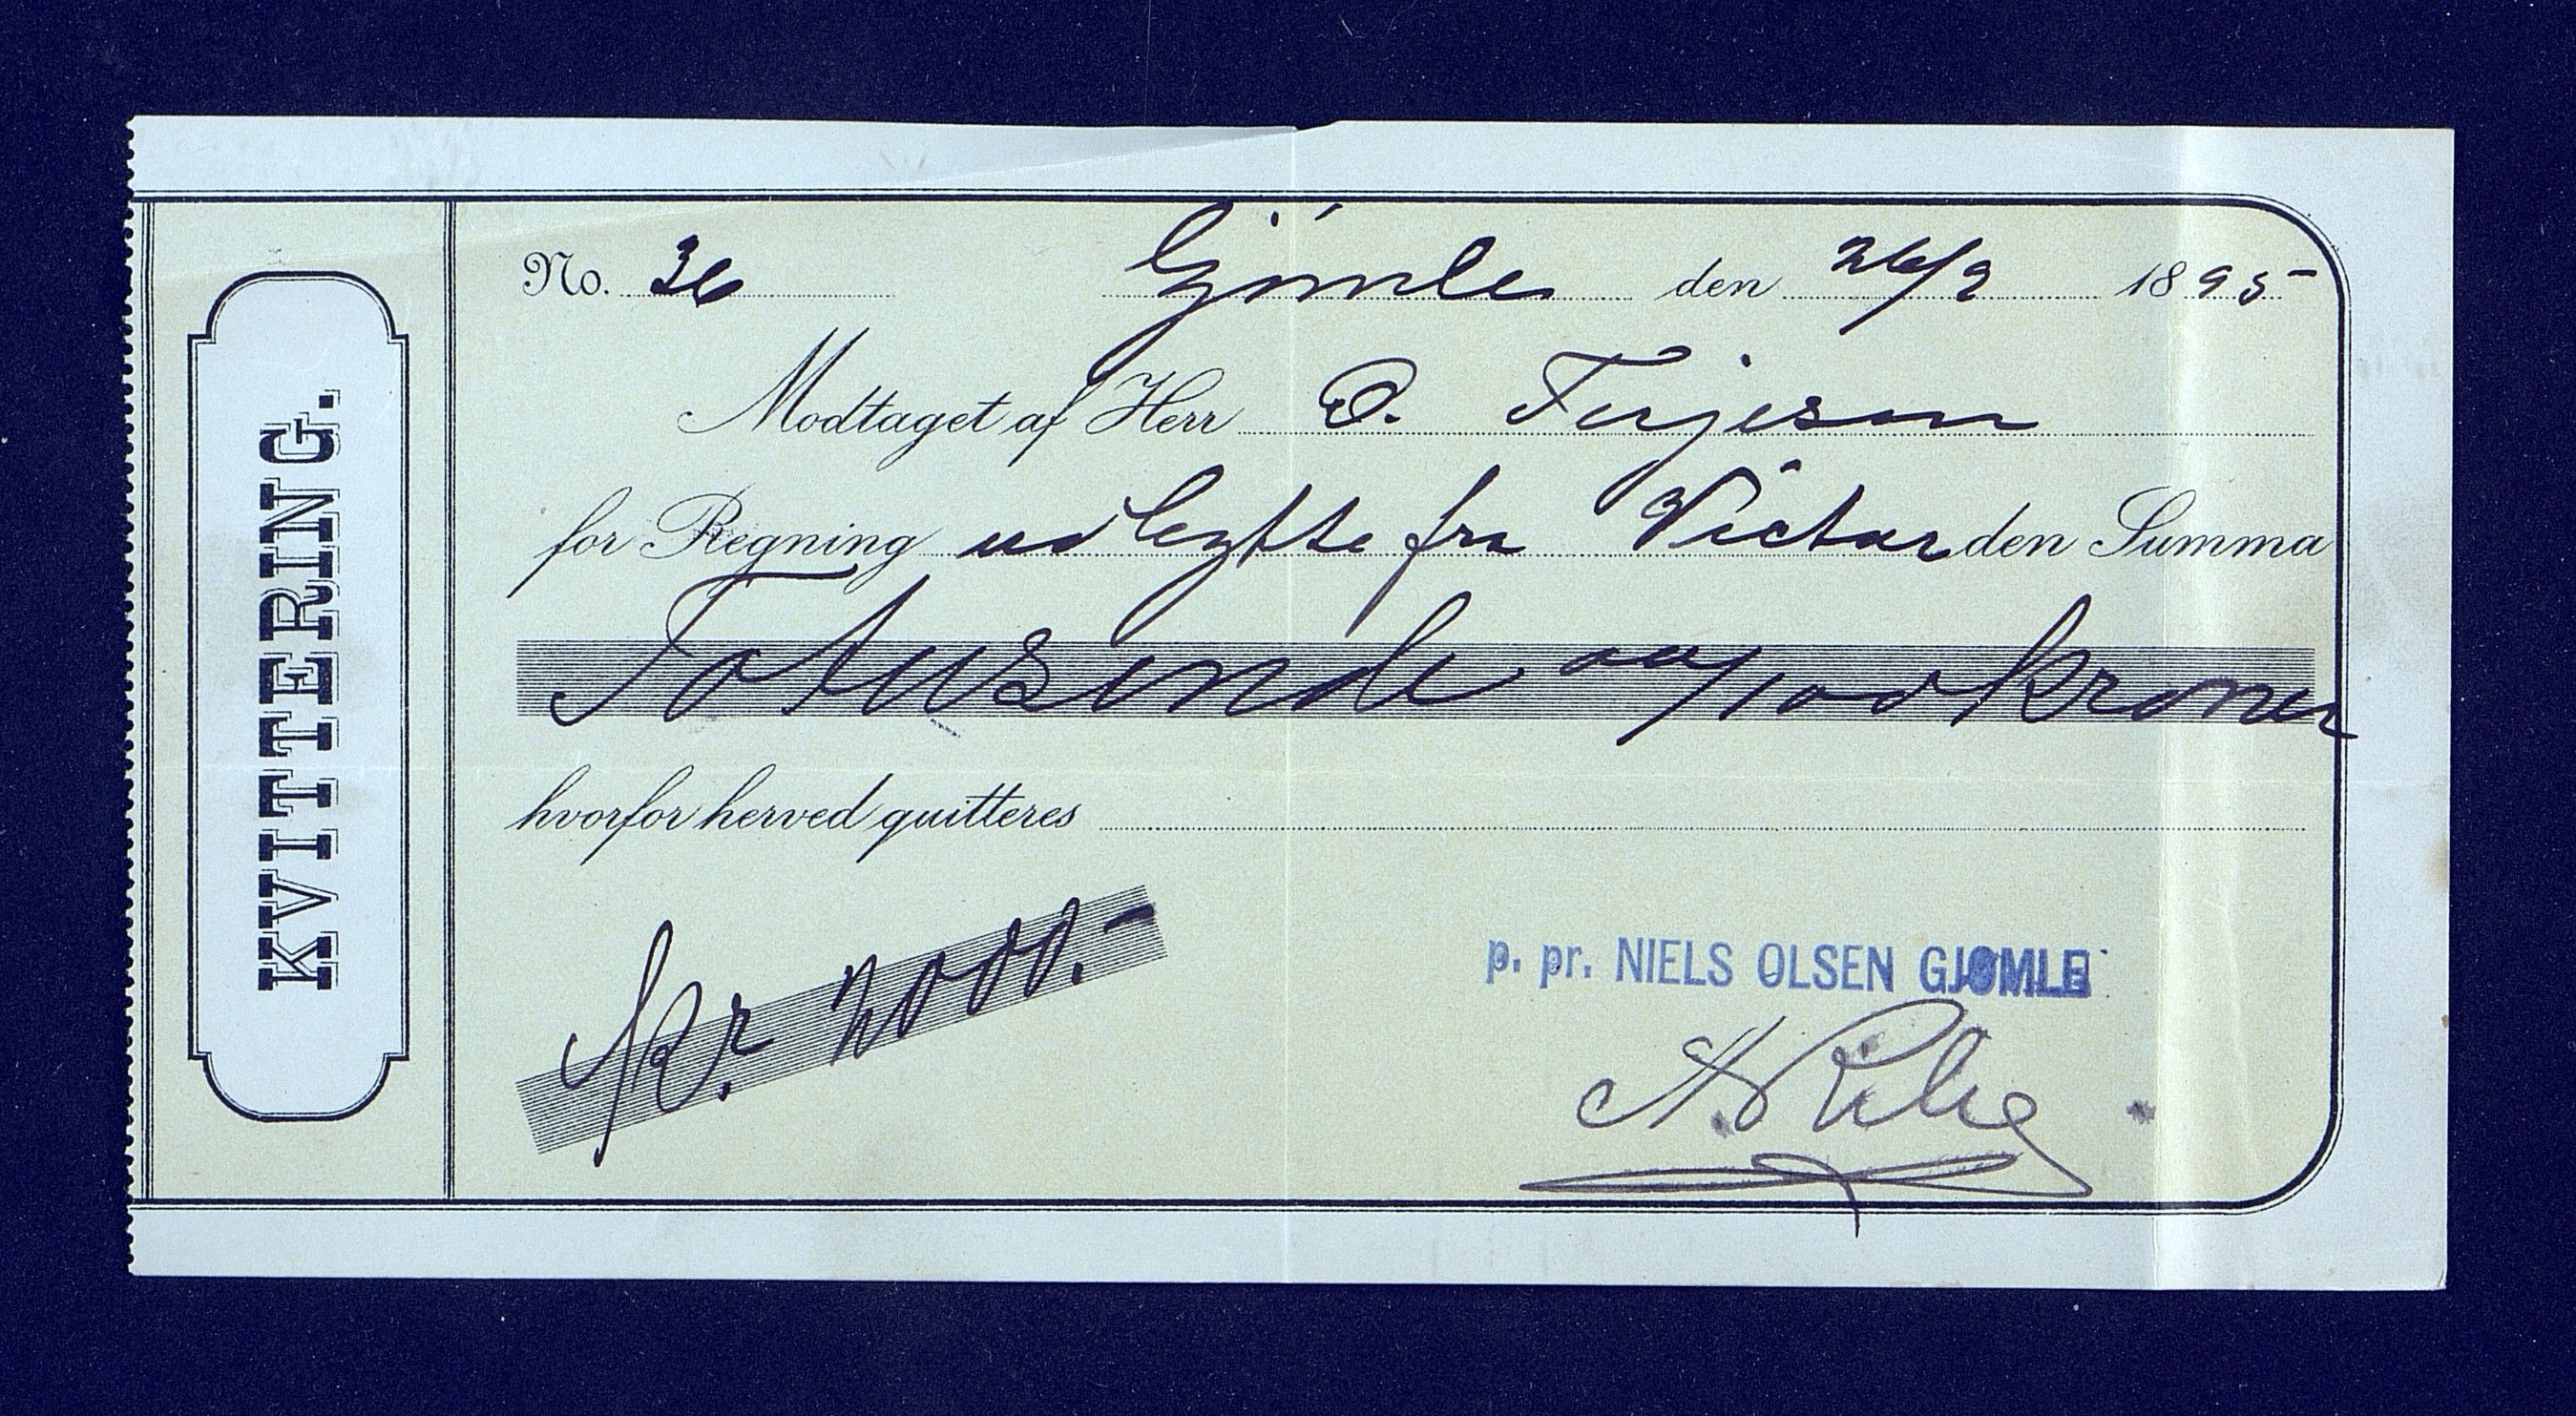 KVITTERING.
No. 36 Gjømle den 26/2 1895
Modtaget af Herr O. Terjesen
for Regning udlegtte fra Victor den Summa
To tusende 00/100 kroner
hvorfor herved quitteres
Kr. 2000.-
p. pr. NIELS OLSEN GJØMLE